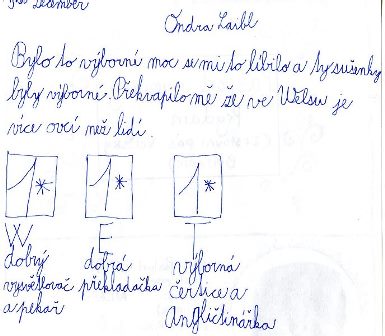 December
Ondra Laibl
Bylo to výborné moc se mi to líbilo a ty sušenky
byly výborné. Překvapilo mě že ve Welsu je
více ovcí než lidí.
1* 1* 1*
W E I
dobrý dobrá výborná
vysvětlovač překladačka čertice a
a pekař Angličtinářka